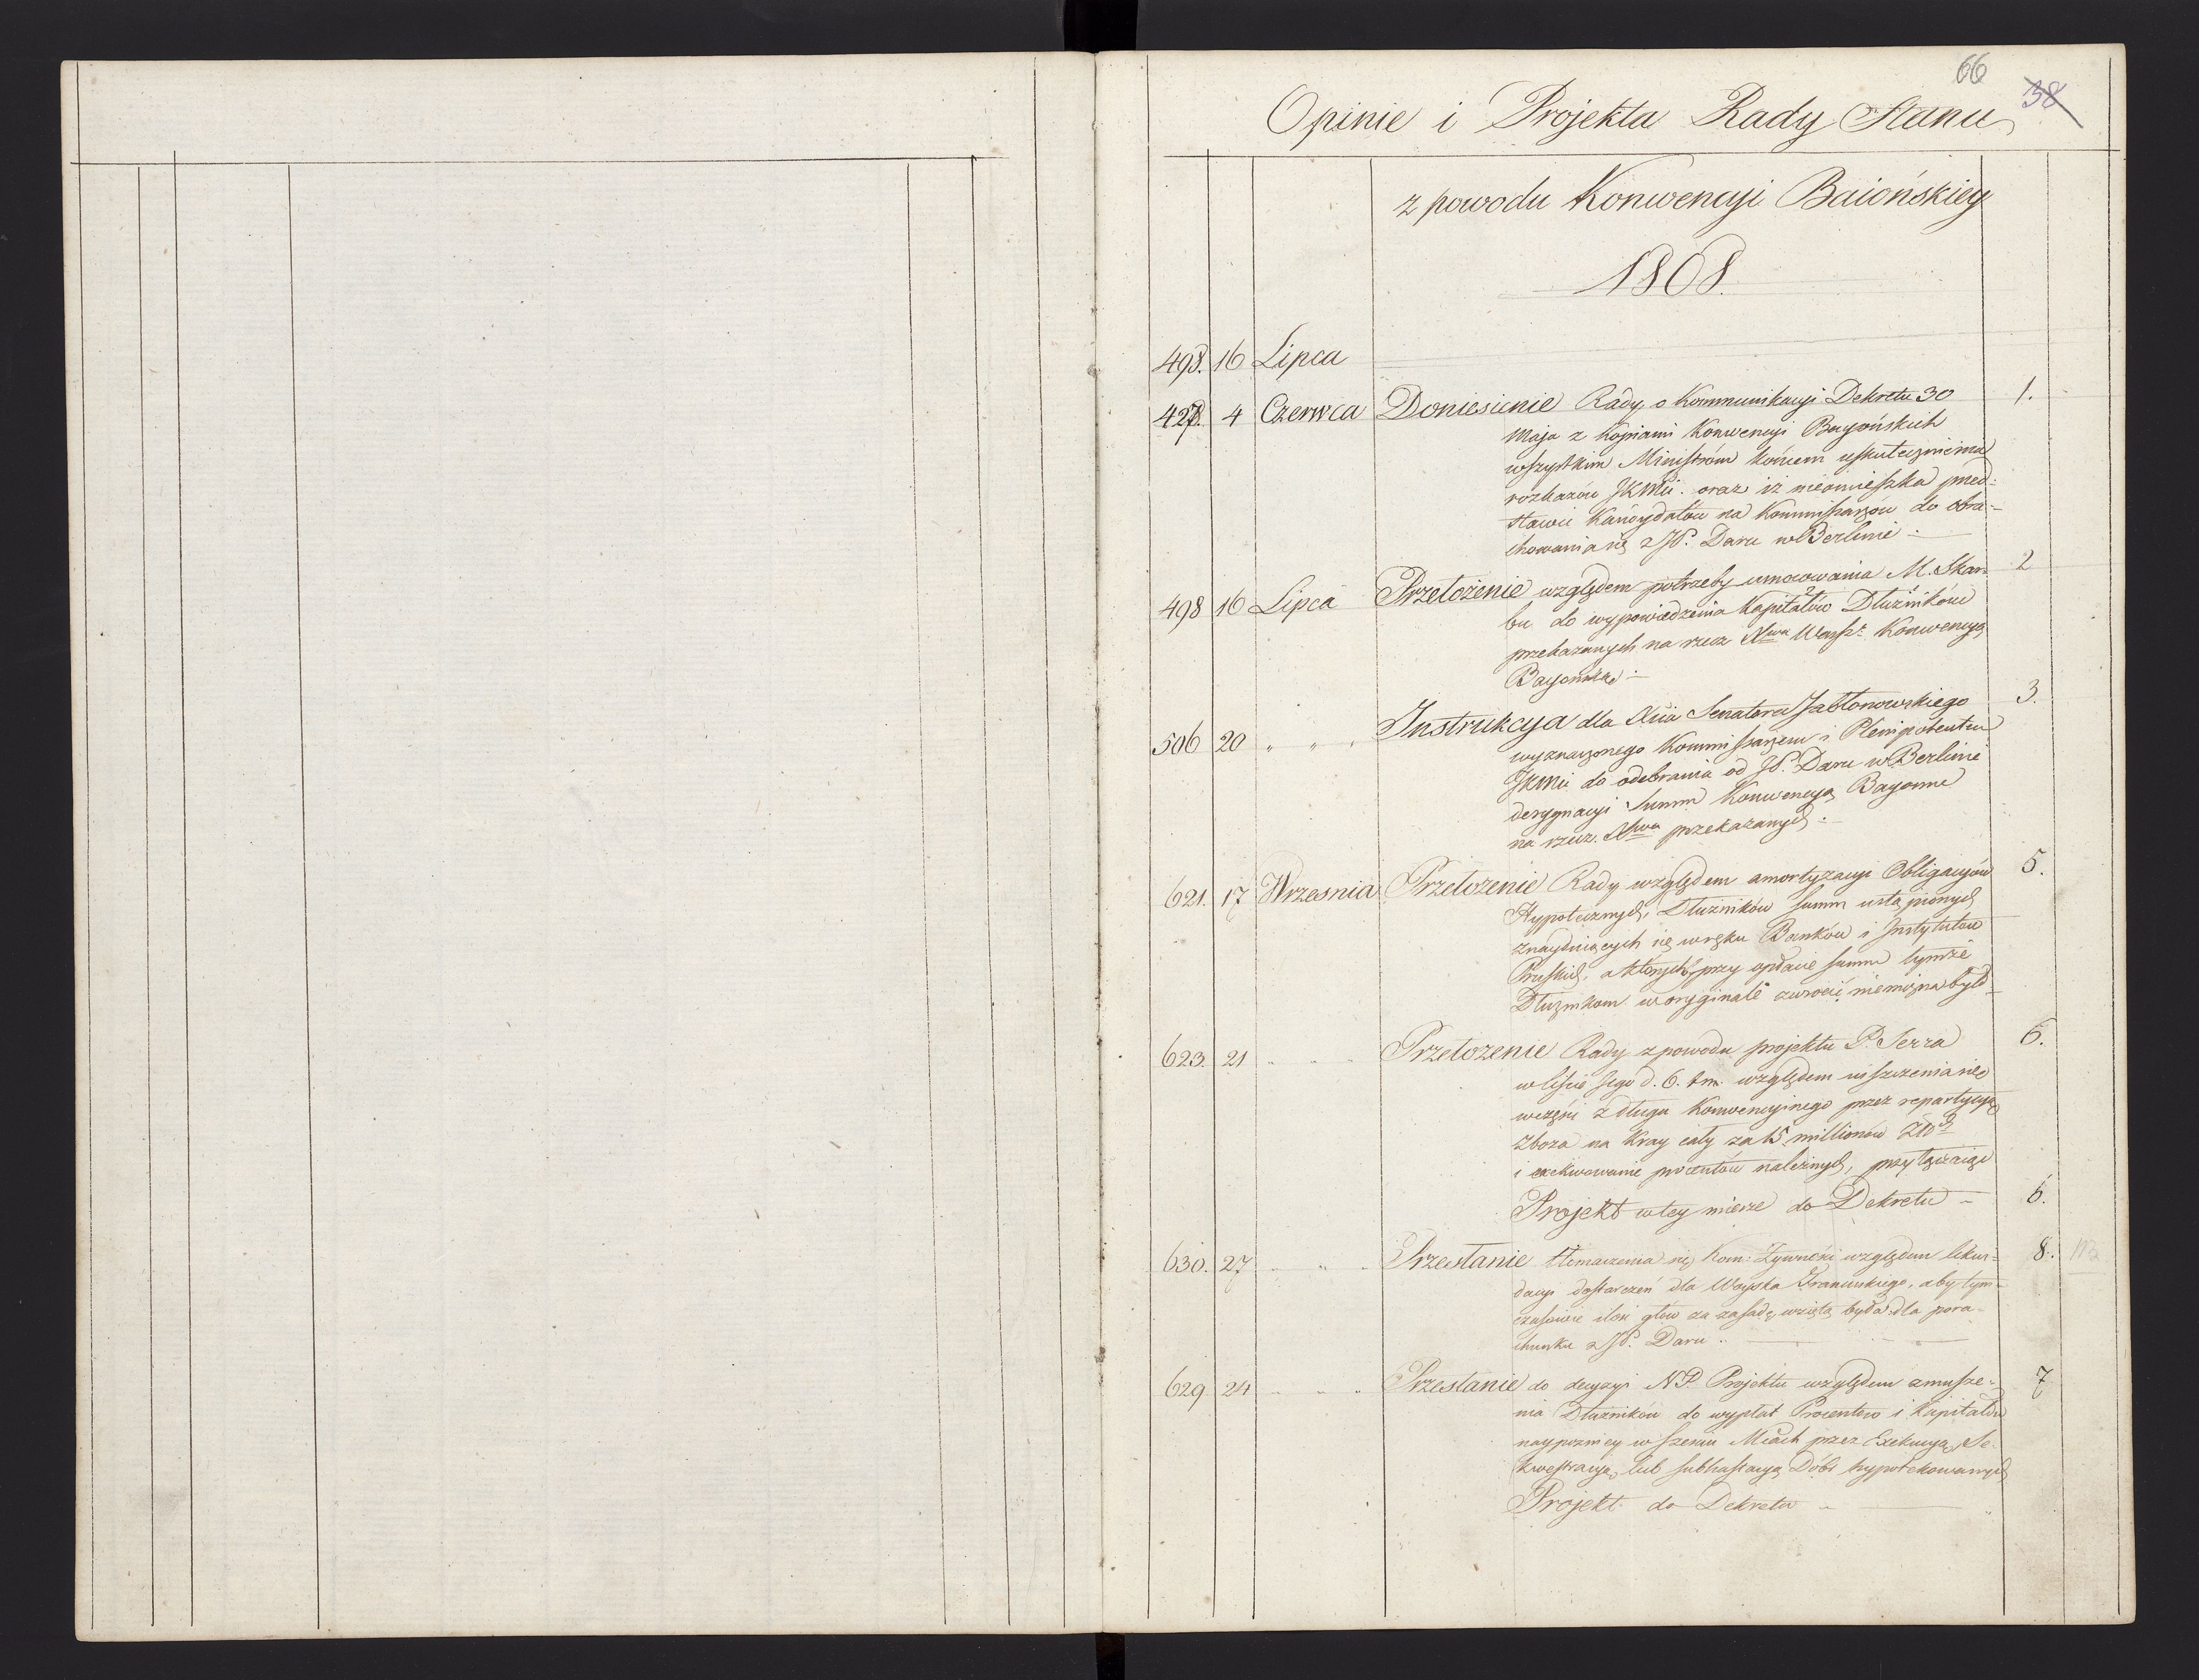 66
38
Opinie i Projekta Rady Stanu
z powodu Konwencyi Baiońskiey
1808.
498. 16 Lipca
427. 4 Czerwca Doniesienie Rady o Kommunikacyi Dekretu 30 1.
Maja z Kopiami Konwencyi Bayońskich
wszystkim Ministróm końcem uskutecznienia
rozkazów JKMci. oraz iż nieomieszka przed-
stawić Kandydatów na Kommissarzów do obra-
chowania się z JP. Daru w Berlinie
498 16 Lipca Przełożenie względem potrzeby umocowania M. Skar- 2
bu do wypowiedzenia Kapitałów Dłużników
przekazanych na rzecz Xtwa Warsz. Konwencyą
Bayońską
506 20 " " Instrukcya dla Xcia Senatora Jabłonowskiego 3.
wyznaczonego Kommissarzem i Plenipotentem
JKMci do odebrania od JP. Daru w Berlinie
designacyi Summ Konwencyą Bayonne
na rzecz Xtwa przekazanych
621. 17 Wrzesnia Przełożenie Rady względem amortyzacyi Obligacyów 5.
Hypotecznych, Dłużników summ ustąpionych
znayduiących się w ręku Banków i Instytutów
Pruskich, a których przy opłacie summ tymże
Dłużnikom w oryginale zwrócić nie można było
623. 21 " " Przełożenie Rady z powodu projektu P. Serra 6.
w liście Jego d. 6. t.m. względem uiszczenia się
w części z długu Konwencyinego przez repartycyą
Zboża na Kray cały za 15 millionów Złotych
i exekwowanie procentów należnych, przyłączaiąc
Projekt w tey mierze do Dekretu 6.
630. 27 " " Przesłanie tłomaczenia się Kom: Żywności względem likwi- 8.
dacyi dostarczeń dla Woyska Francuskiego, aby tym-
czasowie ilość głów za zasadę wzięta była dla pora-
chunku z JP. Daru
629 24 " " Przesłanie do decyzyi NP. Projektu względem zmusze- 7
nia Dłużników do wypłat Procentów i Kapitałów
naypozniey w sześciu Mcach przez Exekucyą, Se-
kwestracyą, lub subhastacyą Dóbr hypotekowanych
Projekt do Dekretu